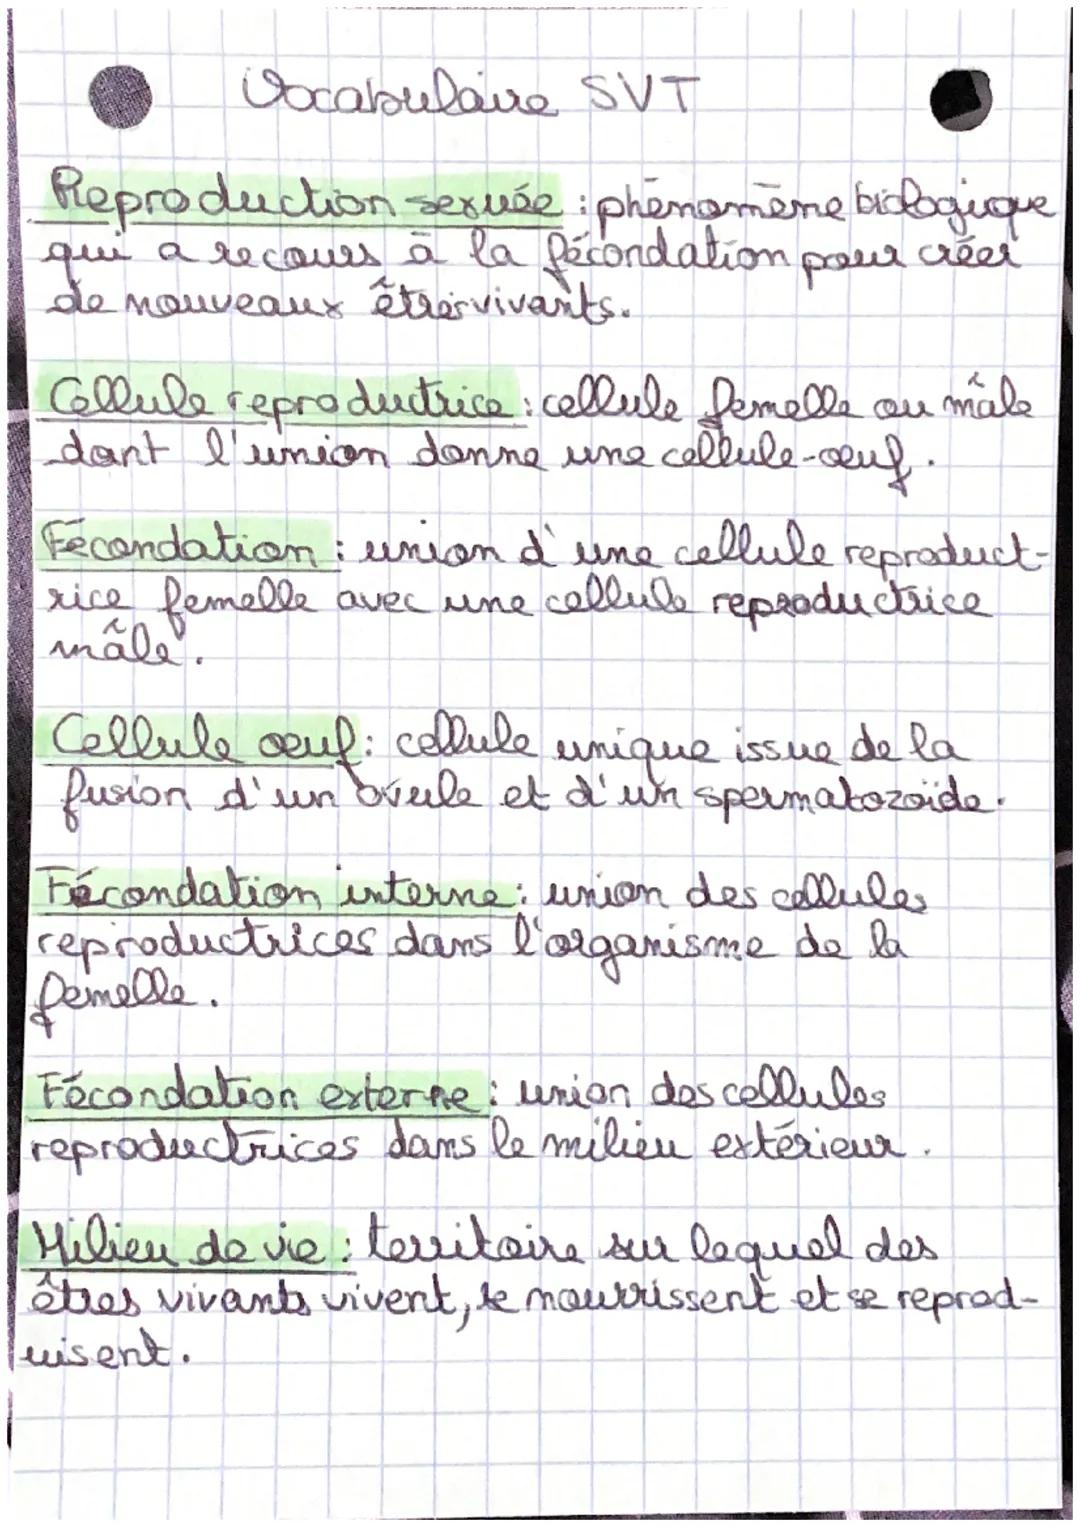 Vocabulaire SVT
Reproduction sexuée : phénomène biologique
qui a recours à la fécondation pour créer
de nouveaux êtres vivants.
Cellule reproductrice : cellule femelle ou mâle
dont l'union donne une cellule-œuf.
Fécondation : union d'une cellule reproduct-
rice femelle avec une cellule reproductrice
mâle.
Cellule œuf : cellule unique issue de la
fusion d'un ovule et d'un spermatozoïde.
Fécondation interne : union des cellules
reproductrices dans l'organisme de la
femelle.
Fécondation externe : union des cellules
reproductrices dans le milieu extérieur.
Milieu de vie : territoire sur lequel des
êtres vivants vivent, se nourrissent et se reprod-
uisent.